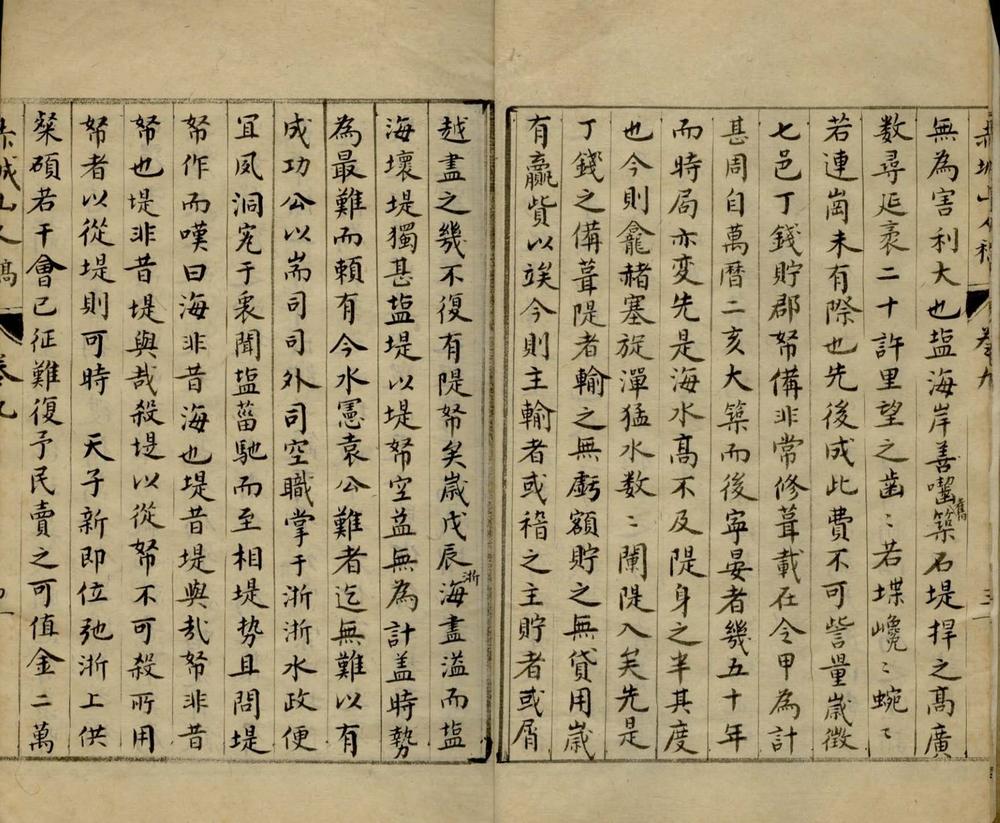 無為害利大也塩海岸善嚙舊築石堤捍之高廣
数尋延袤二十許里望之齒〻若堞巉〻蜿〻
若連崗未有際也先後成此費不可訾量嵗徴
七邑丁錢貯郡帑備非常修葺載在令甲為計
甚周自萬曆二亥大築而後寧晏者幾五十年
而時局亦变先是海水高不及隄身之半其度
也今則龕赭塞旋潬猛水数〻闌隄入矣先是
丁錢之備葺隄者輸之無虧額貯之無貸用嵗
有贏貲以竢今則主輸者或稽之主貯者或屑
越盡之幾不復有隄帑矣嵗戊辰浙海盡溢而塩
海壞堤獨甚塩堤以堤帑空益無為計盖時勢
為最難而頼有今水憲袁公難者迄無難以有
成功公以耑司司外司空職掌于浙浙水政便
宜夙洞宪于衷聞塩菑馳而至相堤势且問堤
帑作而嘆曰海非昔海也堤昔堤與㢤帑非昔
帑也堤非昔堤與哉殺堤以從帑不可殺所用
帑者以從堤則可時　天子新即位弛浙上供
粲碩若干會已征難復予民賣之可值金二萬
赤城山人稿　卷九